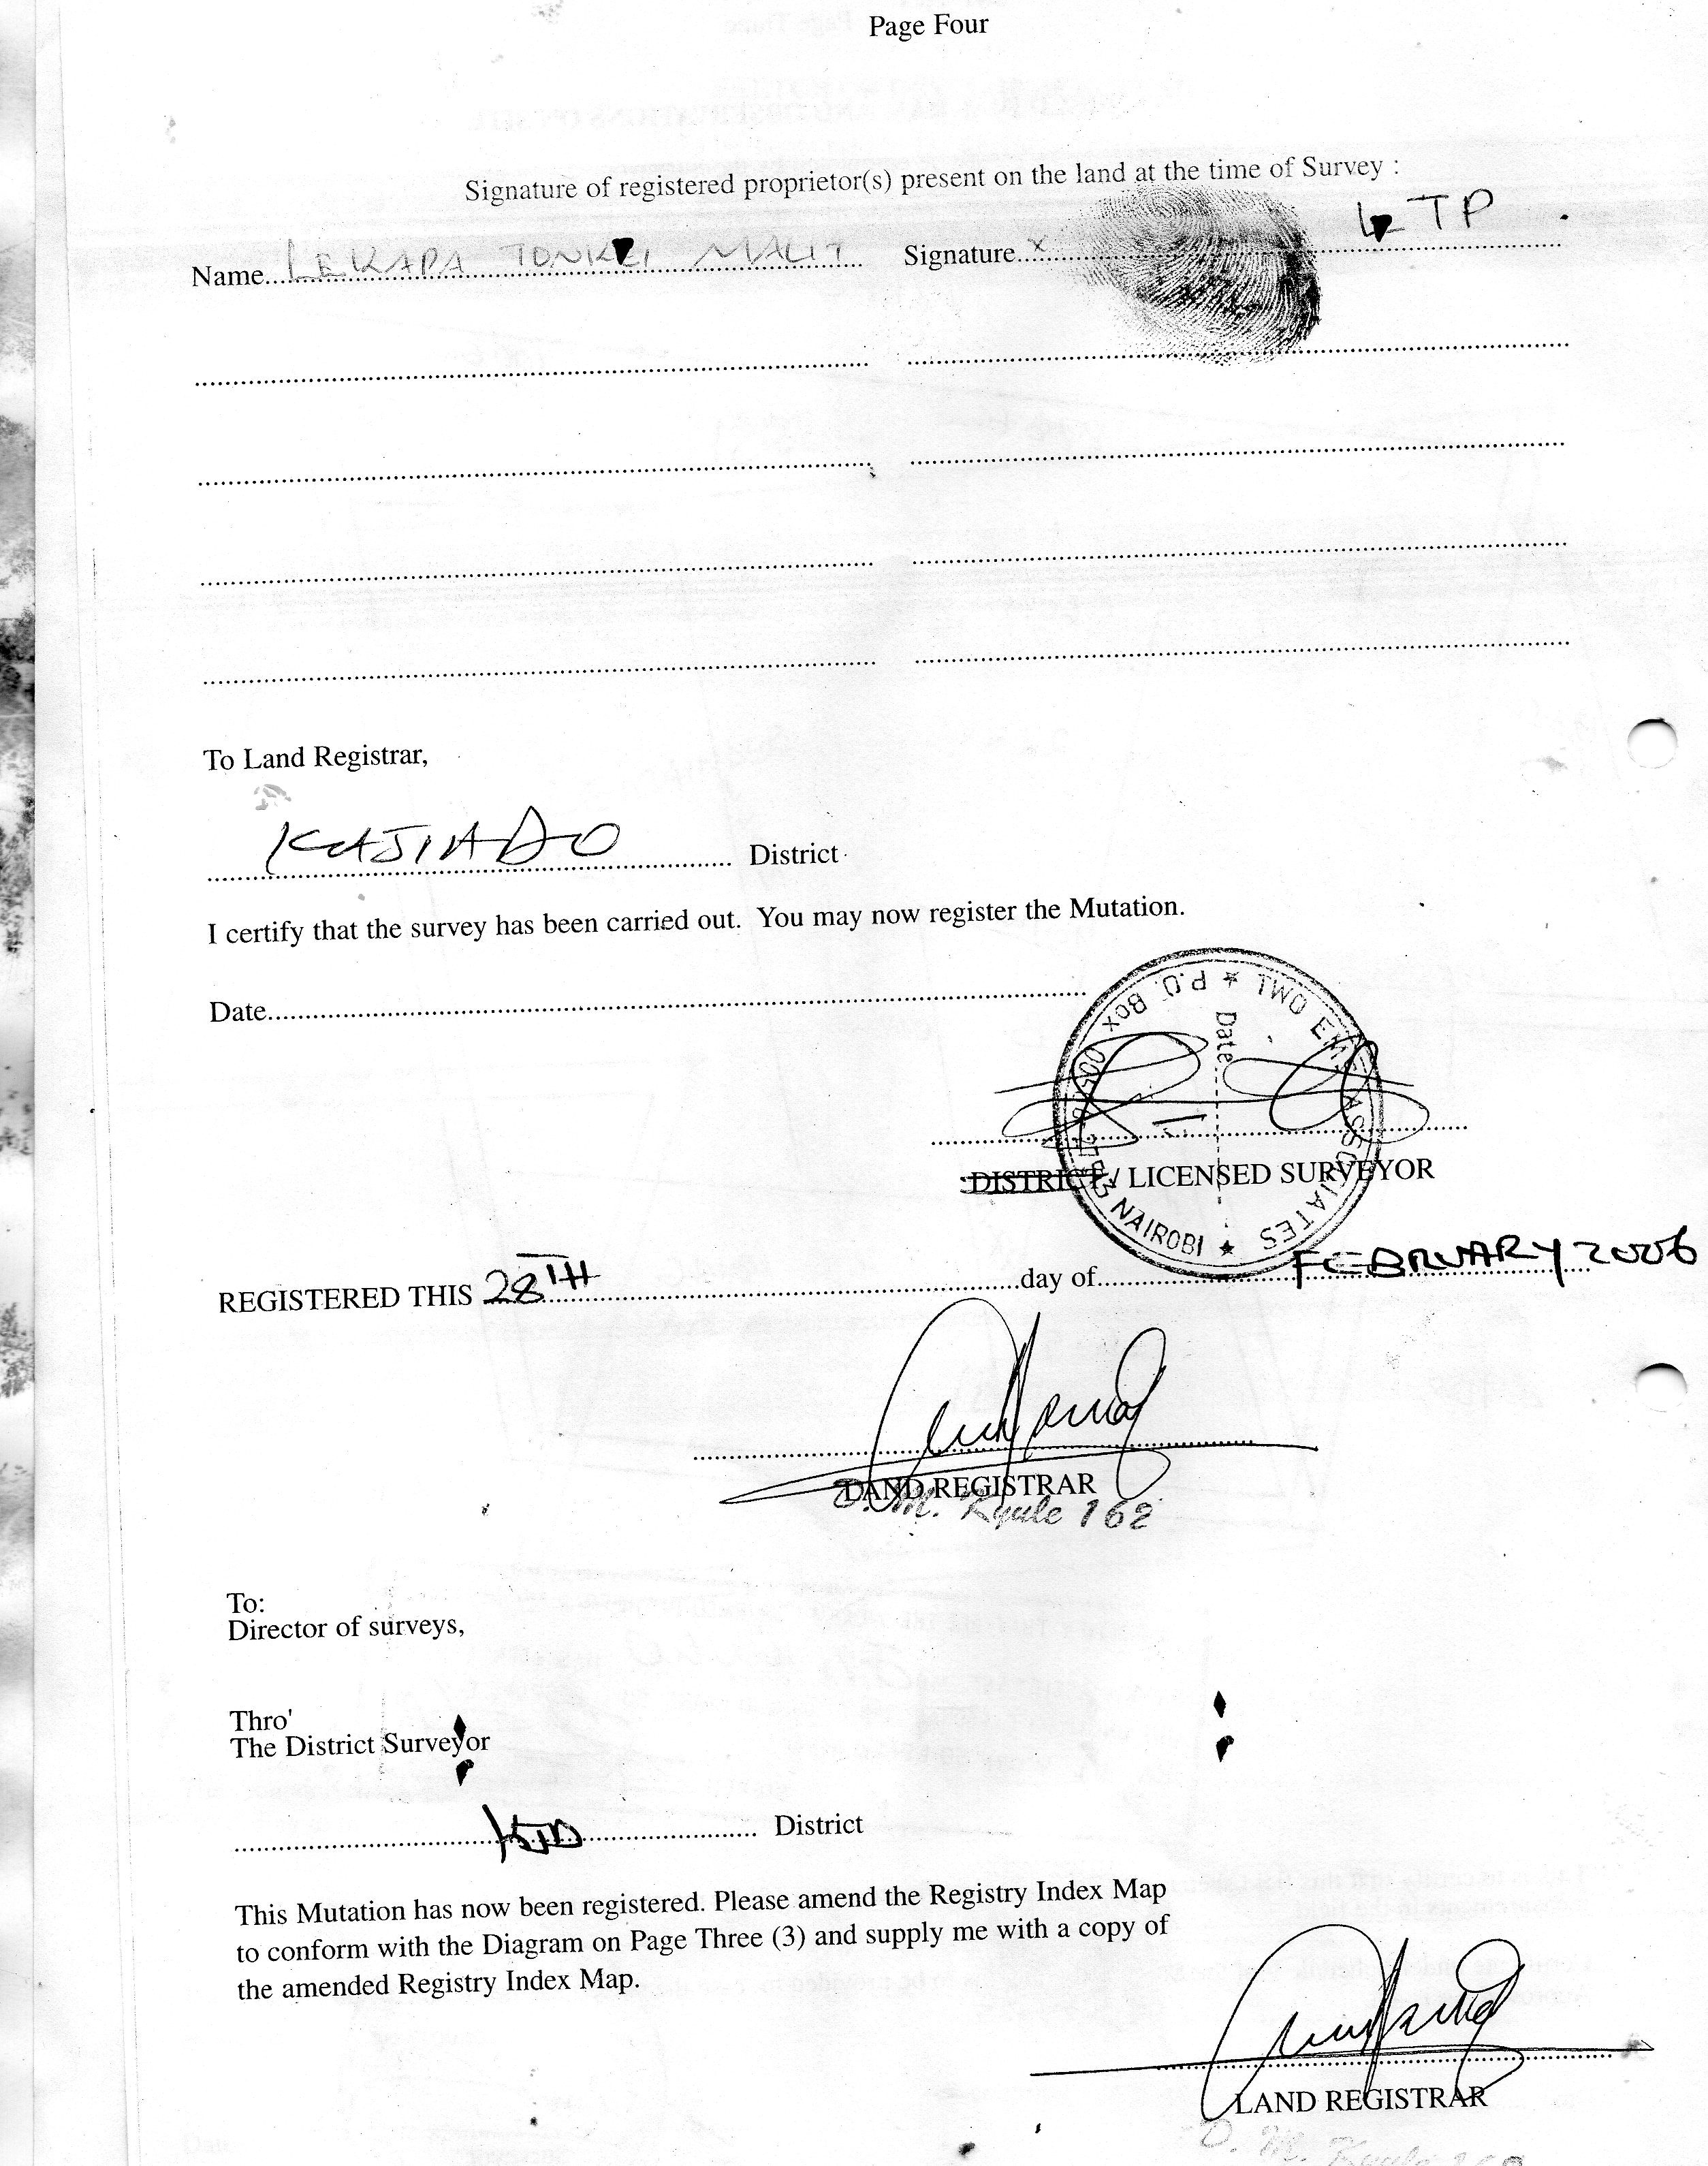 Page Four
Signature of registered proprietor(s) present on the land at the time of Survey :
Name LEKAPA TONKEI MALIT Signature X LTP
To Land Registrar,
KAJIADO District
I certify that the survey has been carried out. You may now register the Mutation.
Date
OML TWO EM ASSOCIATES ★ P.O. Box NAIROBI ★
Date
DISTRICT / LICENSED SURVEYOR
REGISTERED THIS 28TH day of FEBRUARY 2006
LAND REGISTRAR
D. M. Kyule 162
To:
Director of surveys,
Thro'
The District Surveyor
KJD District
This Mutation has now been registered. Please amend the Registry Index Map
to conform with the Diagram on Page Three (3) and supply me with a copy of
the amended Registry Index Map.
LAND REGISTRAR
D. M. Kyule 162